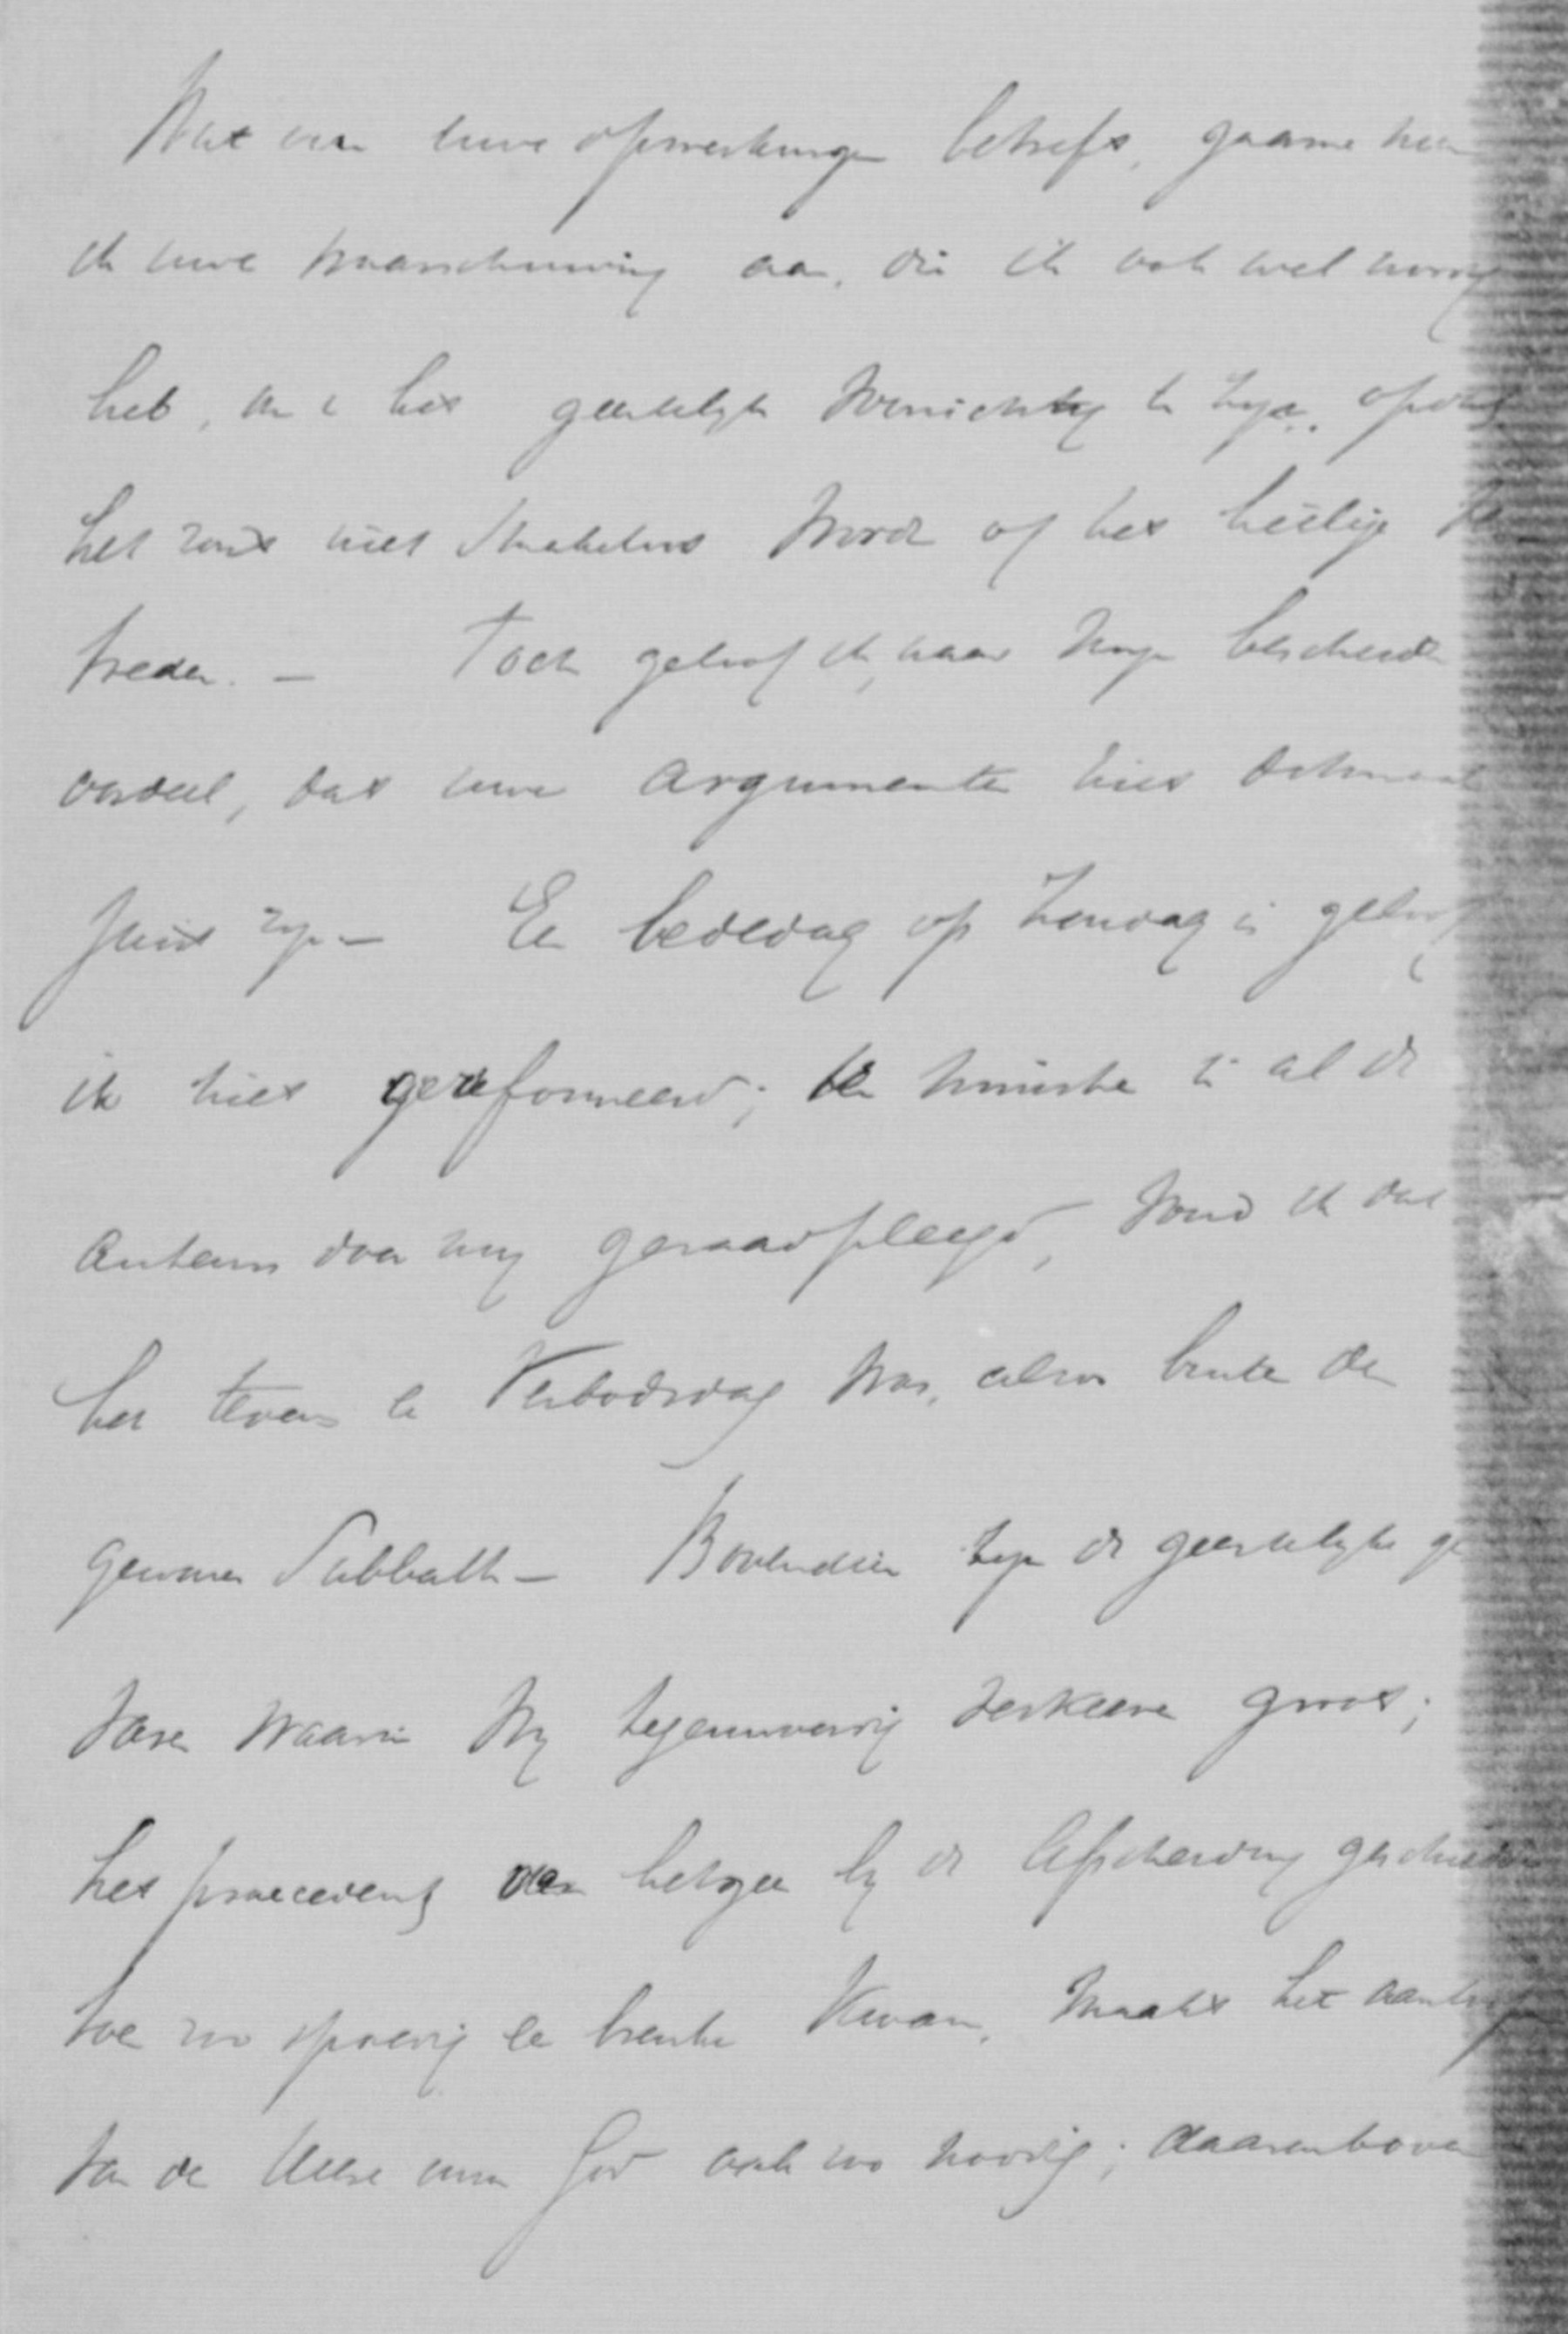 Wat nu uwe opmerkingen betreft, gaarne neem
ik uwe waarschuwing aan, die ik ook wel noodig
heb, om in het geestelijke voorzichtig te zijn, opdat
het zout niet smakeloos worde of het heilige
treden. — Toch geloof ik, naar mijn bescheiden
oordeel, dat uwe argumenten niet ditmaal
juist zijn — Een bededag op Zondag is geloof
ik niet gereformeerd; ten minste in al de
auteurs door mij geraadpleegd, vond ik dat
het tevens een Verbodsdag was, alzoo buiten den
gewonen Sabbath — Bovendien zijn de geestelijke ge
varen waarin wij tegenwoordig verkeeren groot;
het precedent van hetgeen bij de Afscheiding geschiedde
hoe zoo spoedig een breuke kwam, maakt het aanloopen
van den Heere onzen God ook zoo noodig; daarenboven